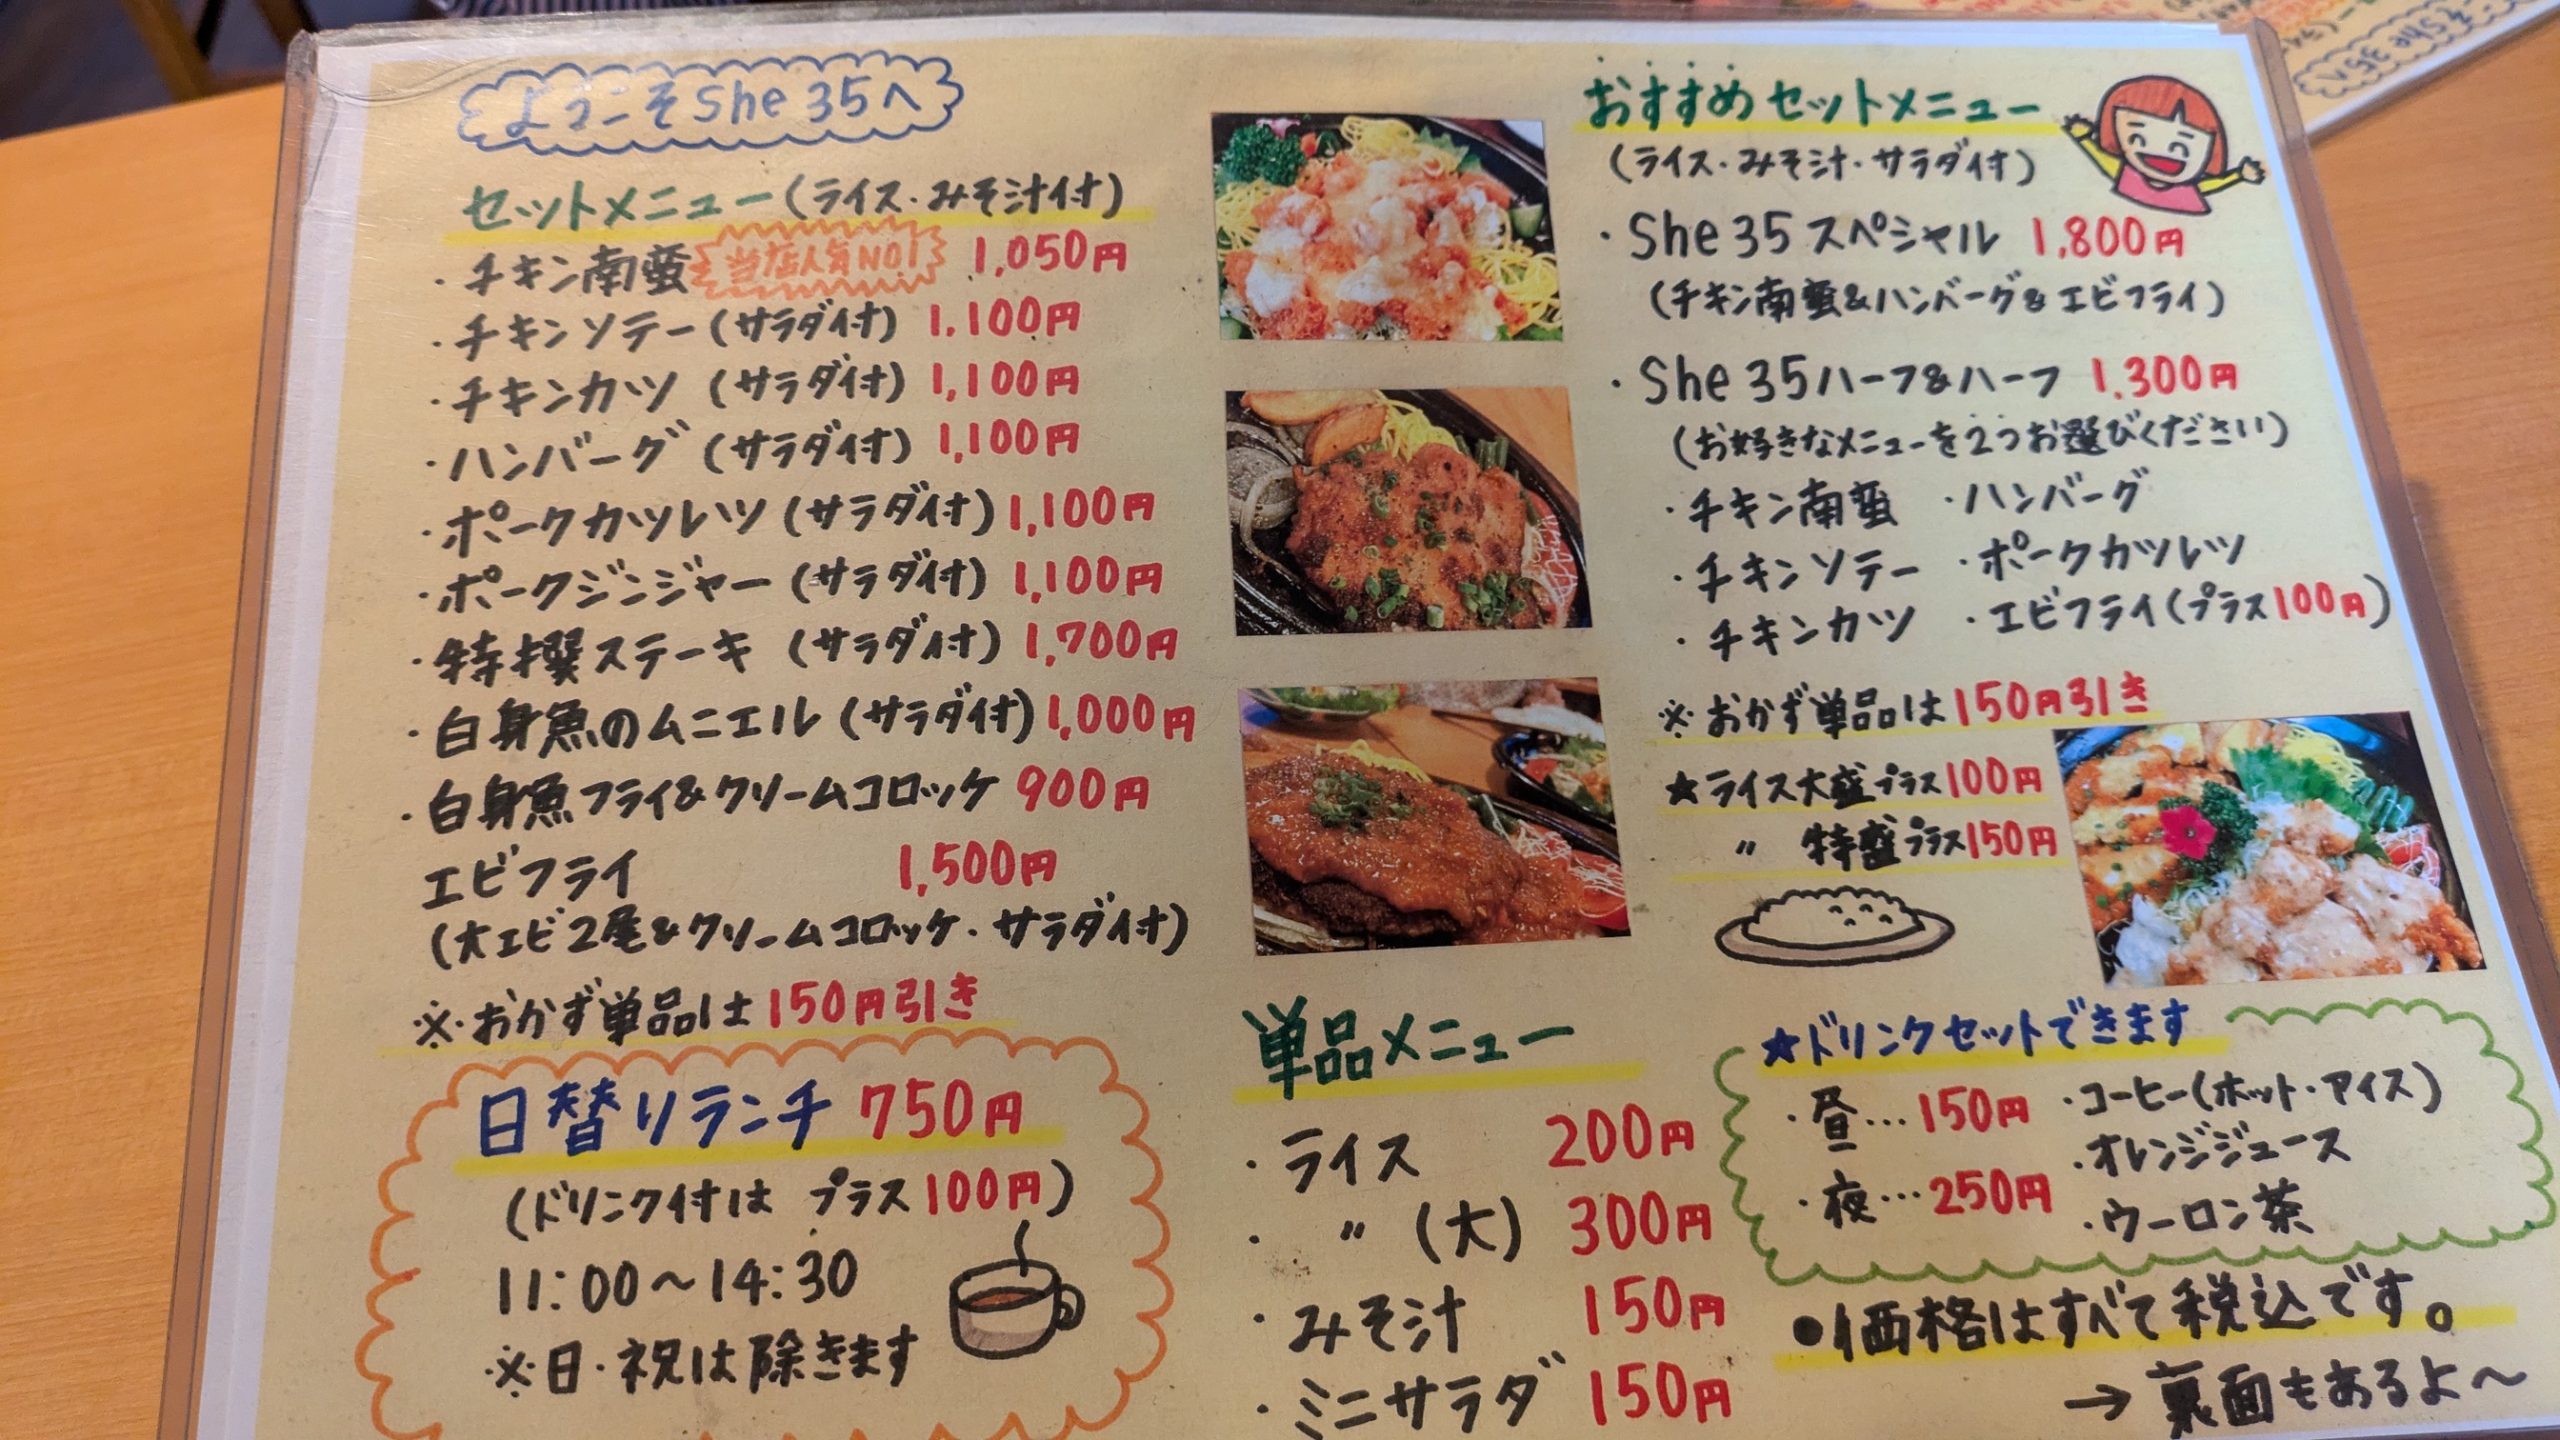 ようこそShe 35へ
セットメニュー(ライス・みそ汁付)
・チキン南蛮 当店人気NO1 1,050円
・チキンソテー(サラダ付) 1,100円
・チキンカツ (サラダ付) 1,100円
・ハンバーグ (サラダ付) 1,100円
・ポークカツレツ (サラダ付) 1,100円
・ポークジンジャー (サラダ付) 1,100円
・特撰ステーキ (サラダ付) 1,700円
・白身魚のムニエル (サラダ付) 1,000円
・白身魚フライ&クリームコロッケ 900円
エビフライ 1,500円
(大エビ2尾&クリームコロッケ・サラダ付)
※おかず単品は150円引き
日替りランチ 750円
(ドリンク付は プラス100円)
11:00~14:30
※日・祝は除きます
単品メニュー
・ライス 200円
・〃 (大) 300円
・みそ汁 150円
・ミニサラダ 150円
おすすめセットメニュー
(ライス・みそ汁・サラダ付)
・She 35 スペシャル 1,800円
(チキン南蛮&ハンバーグ&エビフライ)
・She 35 ハーフ&ハーフ 1,300円
(お好きなメニューを2つお選びください)
・チキン南蛮 ・ハンバーグ
・チキンソテー ・ポークカツレツ
・チキンカツ ・エビフライ(プラス100円)
※おかず単品は150円引き
★ライス大盛プラス100円
〃 特盛プラス150円
★ドリンクセットできます
・昼…150円 ・コーヒー(ホット・アイス)
・オレンジジュース
・夜…250円 ・ウーロン茶
●価格はすべて税込です。
→裏面もあるよ～